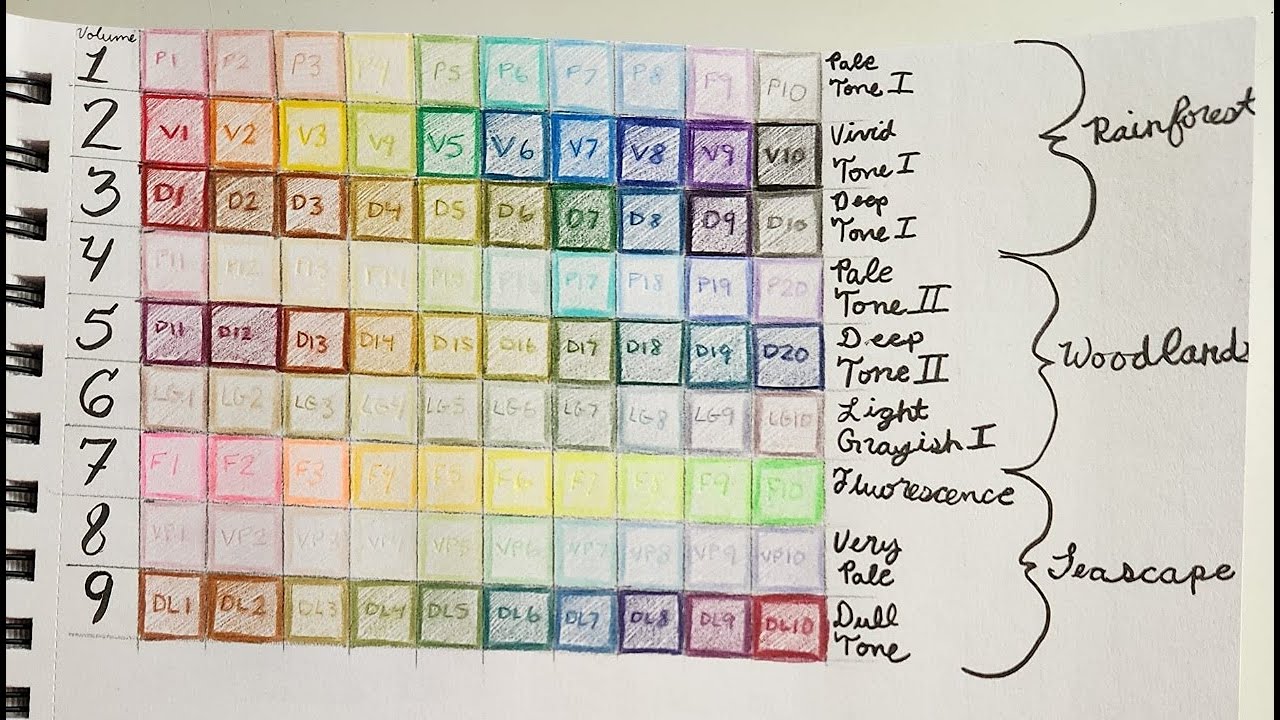 Volume
1 P1 P2 P3 P4 P5 P6 P7 P8 P9 P10 Pale
Tone I
2 V1 V2 V3 V4 V5 V6 V7 V8 V9 V10 Vivid
Tone I
3 D1 D2 D3 D4 D5 D6 D7 D8 D9 D10 Deep
Tone I
Rainforest
4 P11 P12 P13 P14 P15 P16 P17 P18 P19 P20 Pale
Tone II
5 D11 D12 D13 D14 D15 D16 D17 D18 D19 D20 Deep
Tone II
Woodlands
6 LG1 LG2 LG3 LG4 LG5 LG6 LG7 LG8 LG9 LG10 Light
Grayish I
7 F1 F2 F3 F4 F5 F6 F7 F8 F9 F10 Fluorescence
8 VP1 VP2 VP3 VP4 VP5 VP6 VP7 VP8 VP9 VP10 Very
Pale
Seascape
9 DL1 DL2 DL3 DL4 DL5 DL6 DL7 DL8 DL9 DL10 Dull
Tone